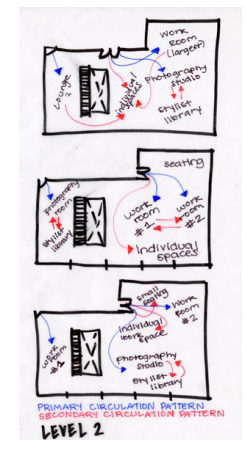 WORK
ROOM
(largest)
Lounge
?
individual
spaces
photography
studio
stylist
library
seating
photography
room
stylist
library
WORK
ROOM
#1
WORK
ROOM
#2
individual
spaces
small
seating
WORK
ROOM
#2
individual
work
space
WORK
ROOM
#1
photography
studio
stylist
library
PRIMARY CIRCULATION PATTERN
SECONDARY CIRCULATION PATTERN
LEVEL 2